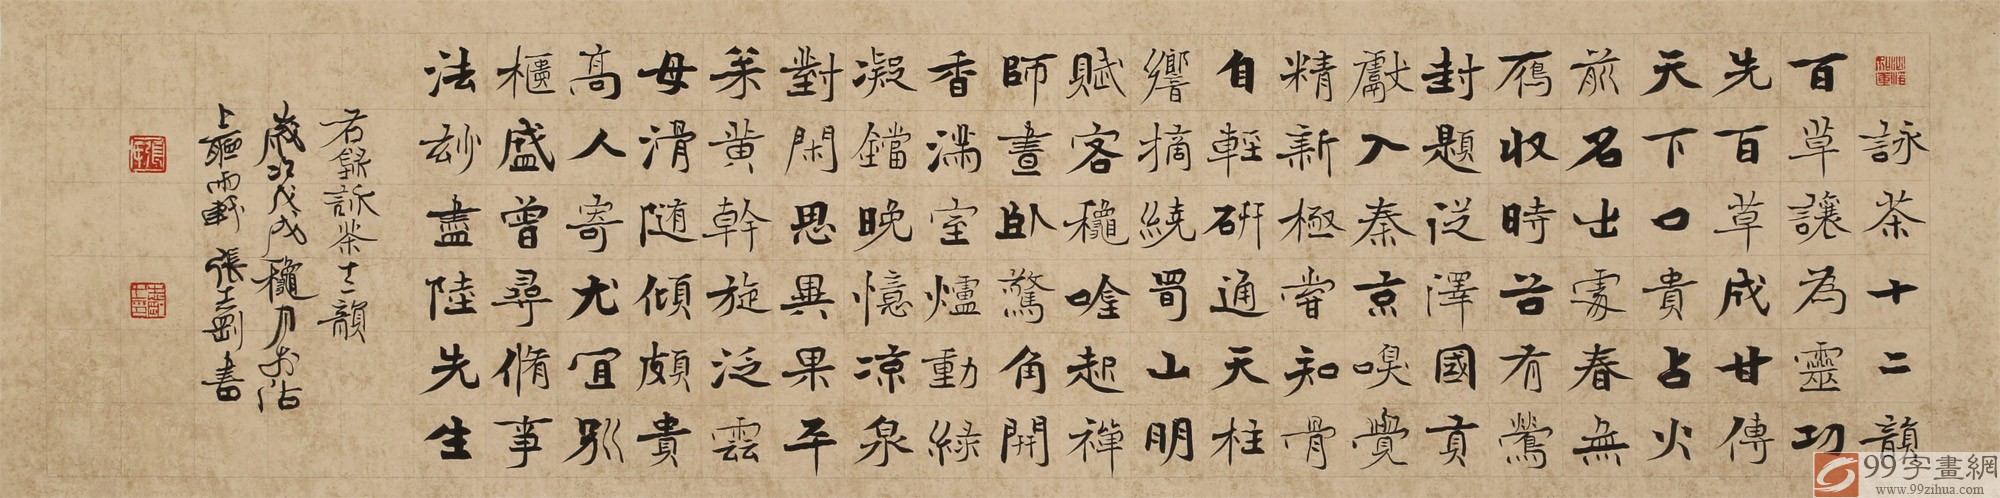 詠茶十二韻
百草讓為靈功
先百草成甘傳
天下口貴占火
前名出處春無
鴈收時谷有鶯
封題従澤國貢
獻入秦京嗅覺
精新極嘗知骨
自輕研通天柱
響摘繞蜀山明
賦客龝唫起禪
師晝卧驚角開
香滿室爐動綠
凝鐺晚憶凉泉
對閑思異果平
枩黃幹旋泛雲
母滑随傾頗貴
高人寄尤宜别
櫃盛曾尋脩事
法玅盡陸先生
右錄詠茶十二韻
歲次戊戌龝月於沽
上聽雨軒張士剛書
99字畫網
www.99zihua.com